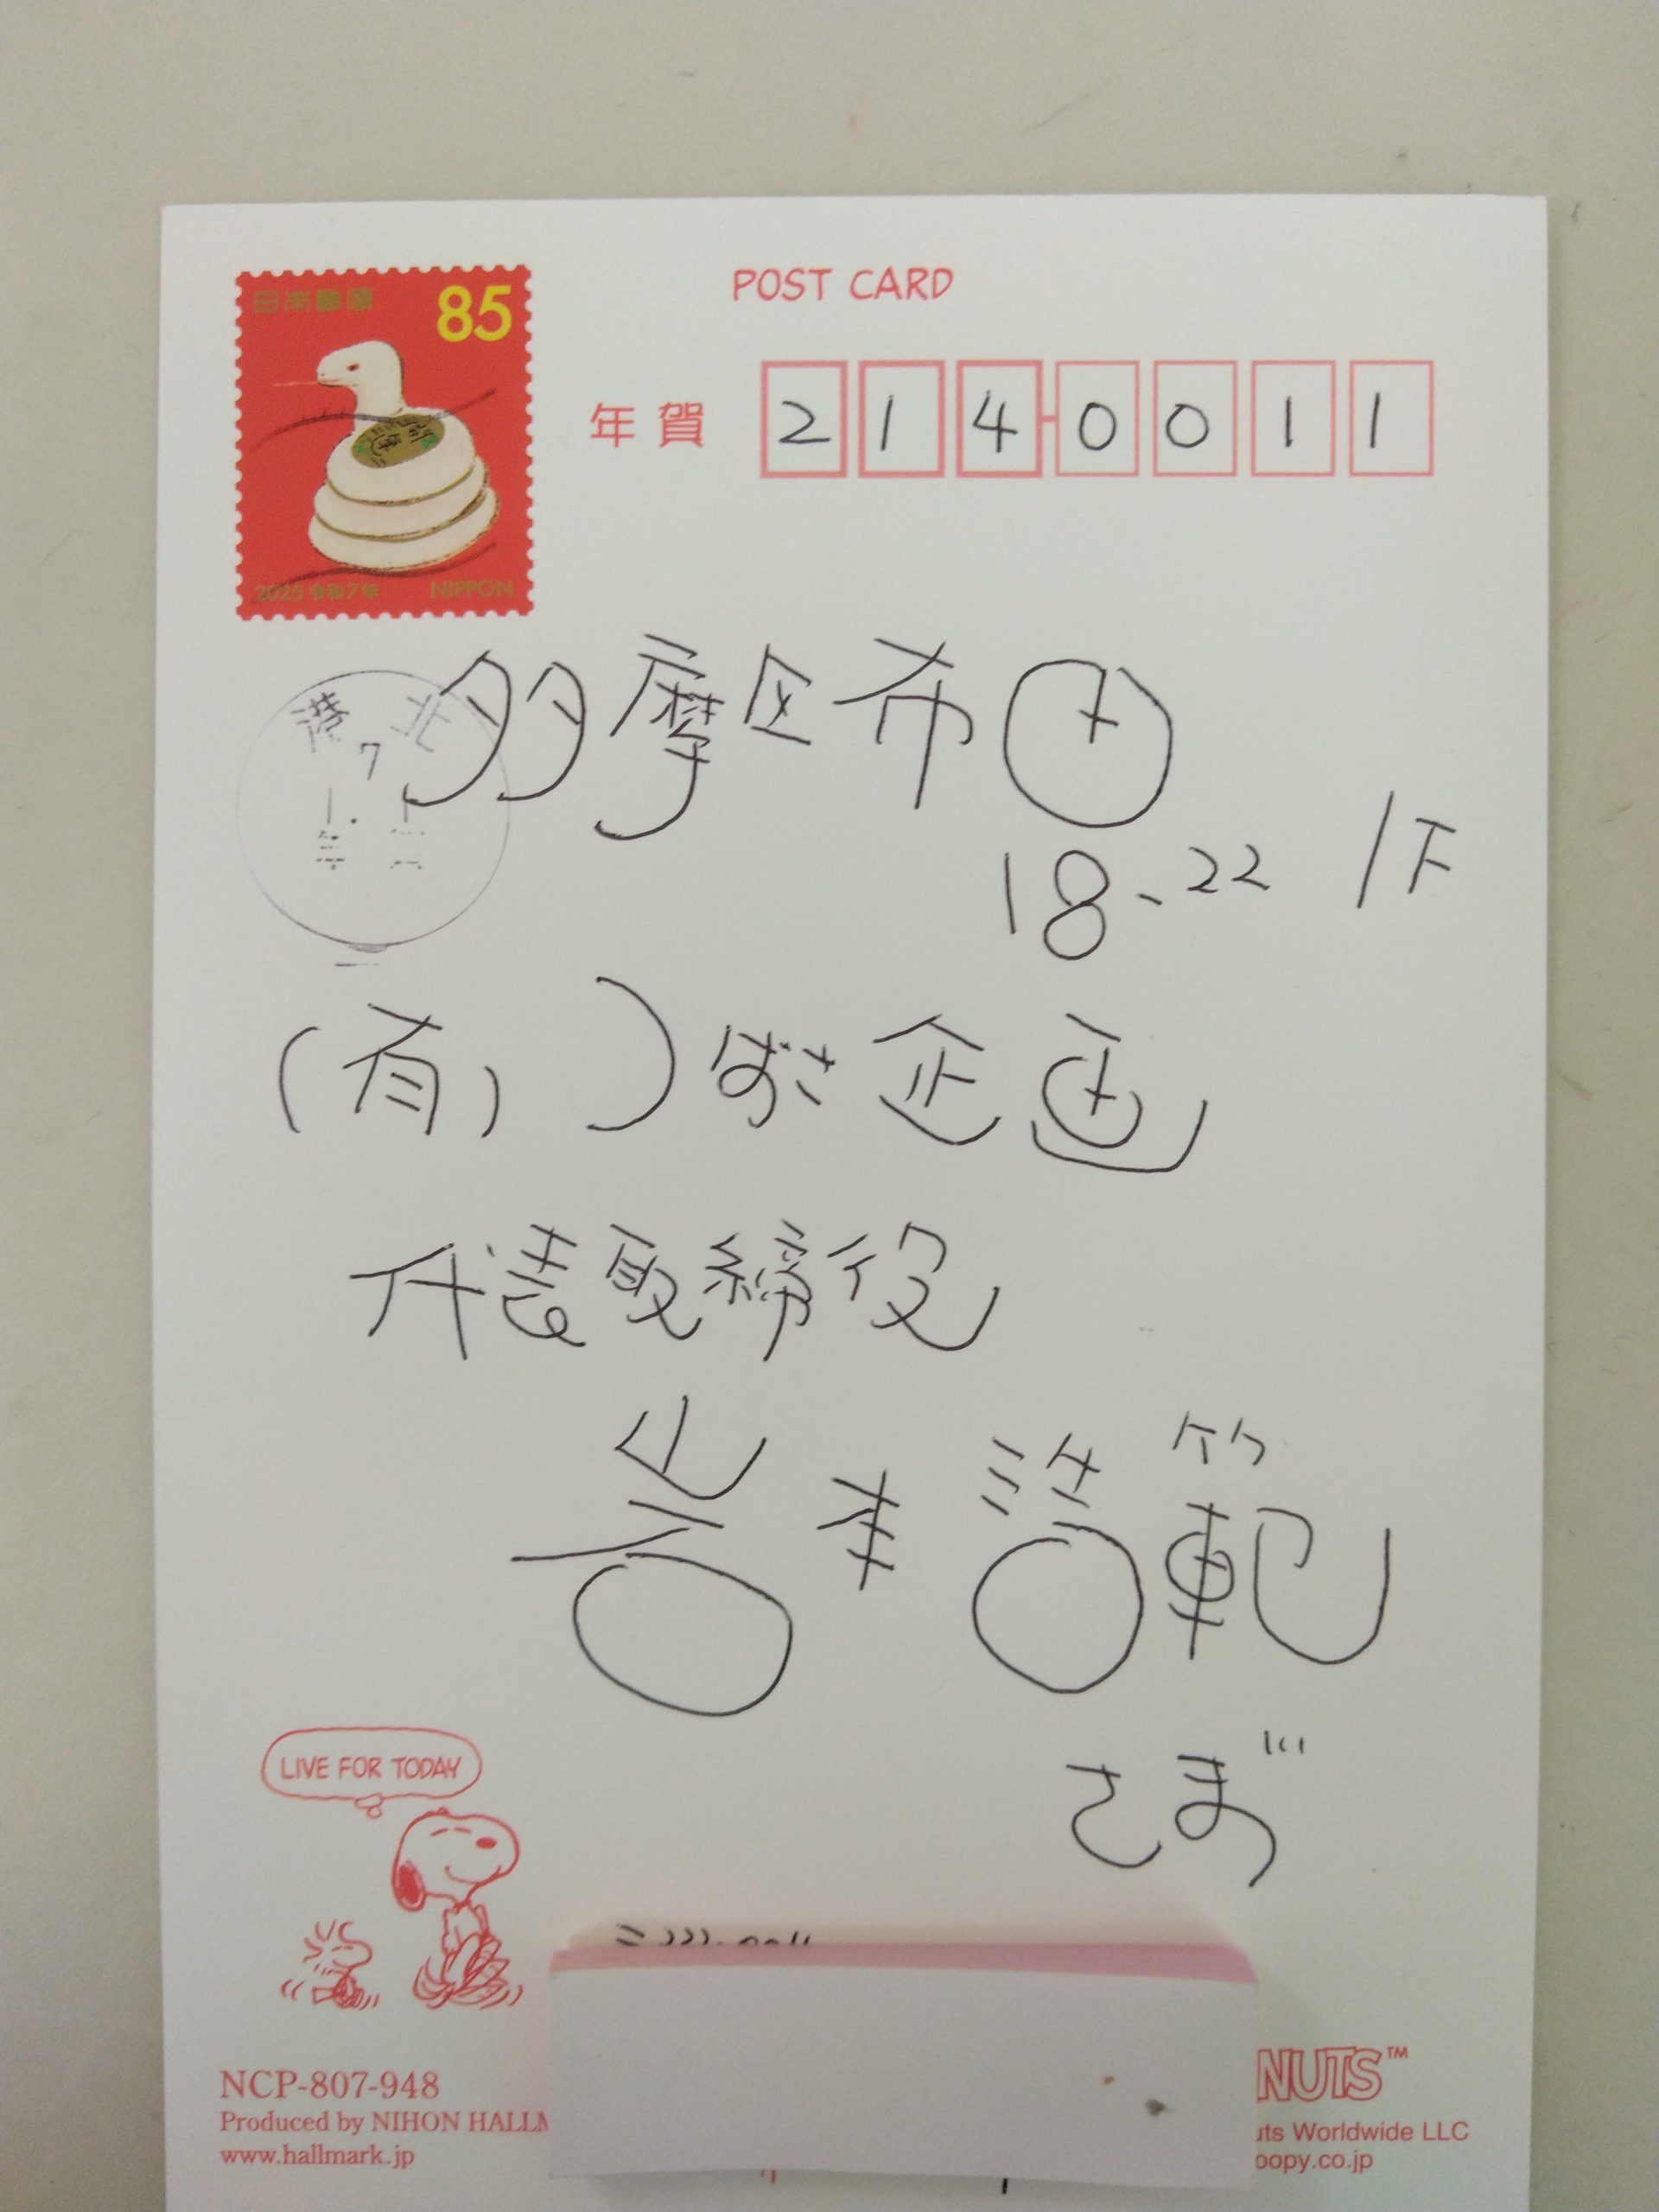 日本郵便 85
2025 令和7年 NIPPON
POST CARD
年賀 214-0011
港北
7
1. 1
年賀
多摩区布田
18-22 1F
(有) ) ずさ企画
代表取締役
岩本浩範
さま
LIVE FOR TODAY
NCP-807-948
Produced by NIHON HALLM
www.hallmark.jp
NUTS™
uts Worldwide LLC
oopy.co.jp